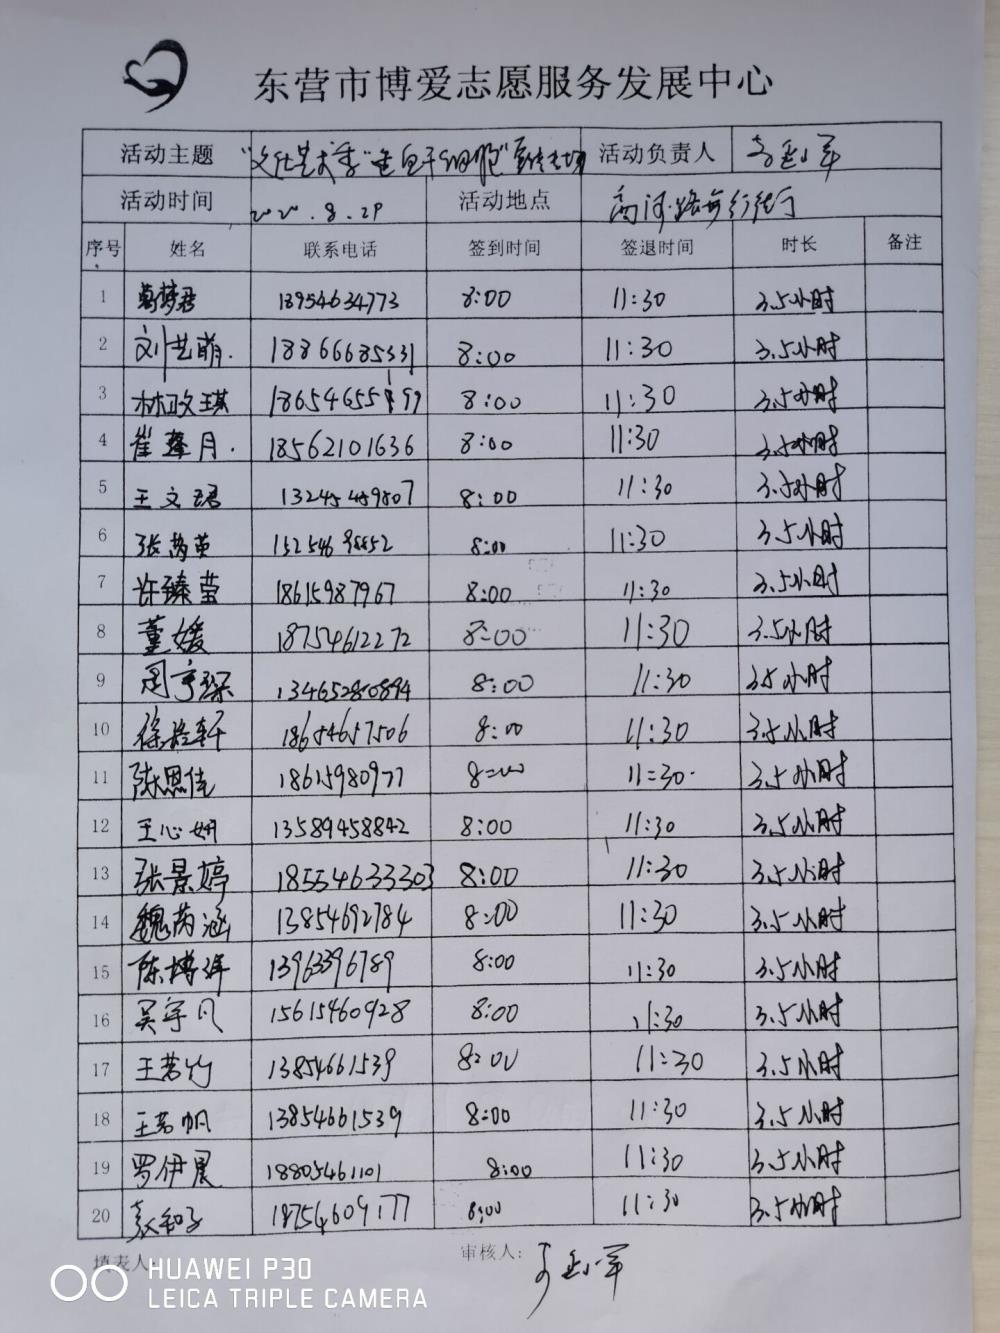 东营市博爱志愿服务发展中心
活动主题 "文化艺术季" 活动负责人
活动时间 2020.8.29 活动地点
序号 姓名 联系电话 签到时间 签退时间 时长 备注
1 葛梦君 13954634773 8:00 11:30 3.5小时
2 刘艺萌. 18866685331 8:00 11:30 3.5小时
3 林政琪 8:00 11:30 3.5小时
4 崔蓬月. 18562101636 8:00 11:30 3.5小时
5 王文珺 8:00 11:30 3.5小时
6 张芮英 8:00 11:30 3.5小时
7 许臻莹 18615987967 8:00 11:30 3.5小时
8 董媛 18754612272 8:00 11:30 3.5小时
9 周宇琛 8:00 11:30 35小时
10 18654657506 8:00 11:30 3.5小时
11 陈恩佳 18615980977 8:00 11:30 3.5小时
12 王心妍 13589458842 8:00 11:30 3.5小时
13 张景婷 18554633303 8:00 11:30 3.5小时
14 魏芮涵 13854692784 8:00 11:30 3.5小时
15 陈博洋 13963396789 8:00 11:30 3.5小时
16 吴宇凡 15615460928 8:00 11:30 3.5小时
17 王若竹 13854661539 8:00 11:30 3.5小时
18 王若帆 13854661539 8:00 11:30 3.5小时
19 罗伊晨 18805461101 8:00 11:30 3.5小时
20 18754609177 8:00 11:30 3.5小时
填表人: 审核人:
HUAWEI P30
LEICA TRIPLE CAMERA